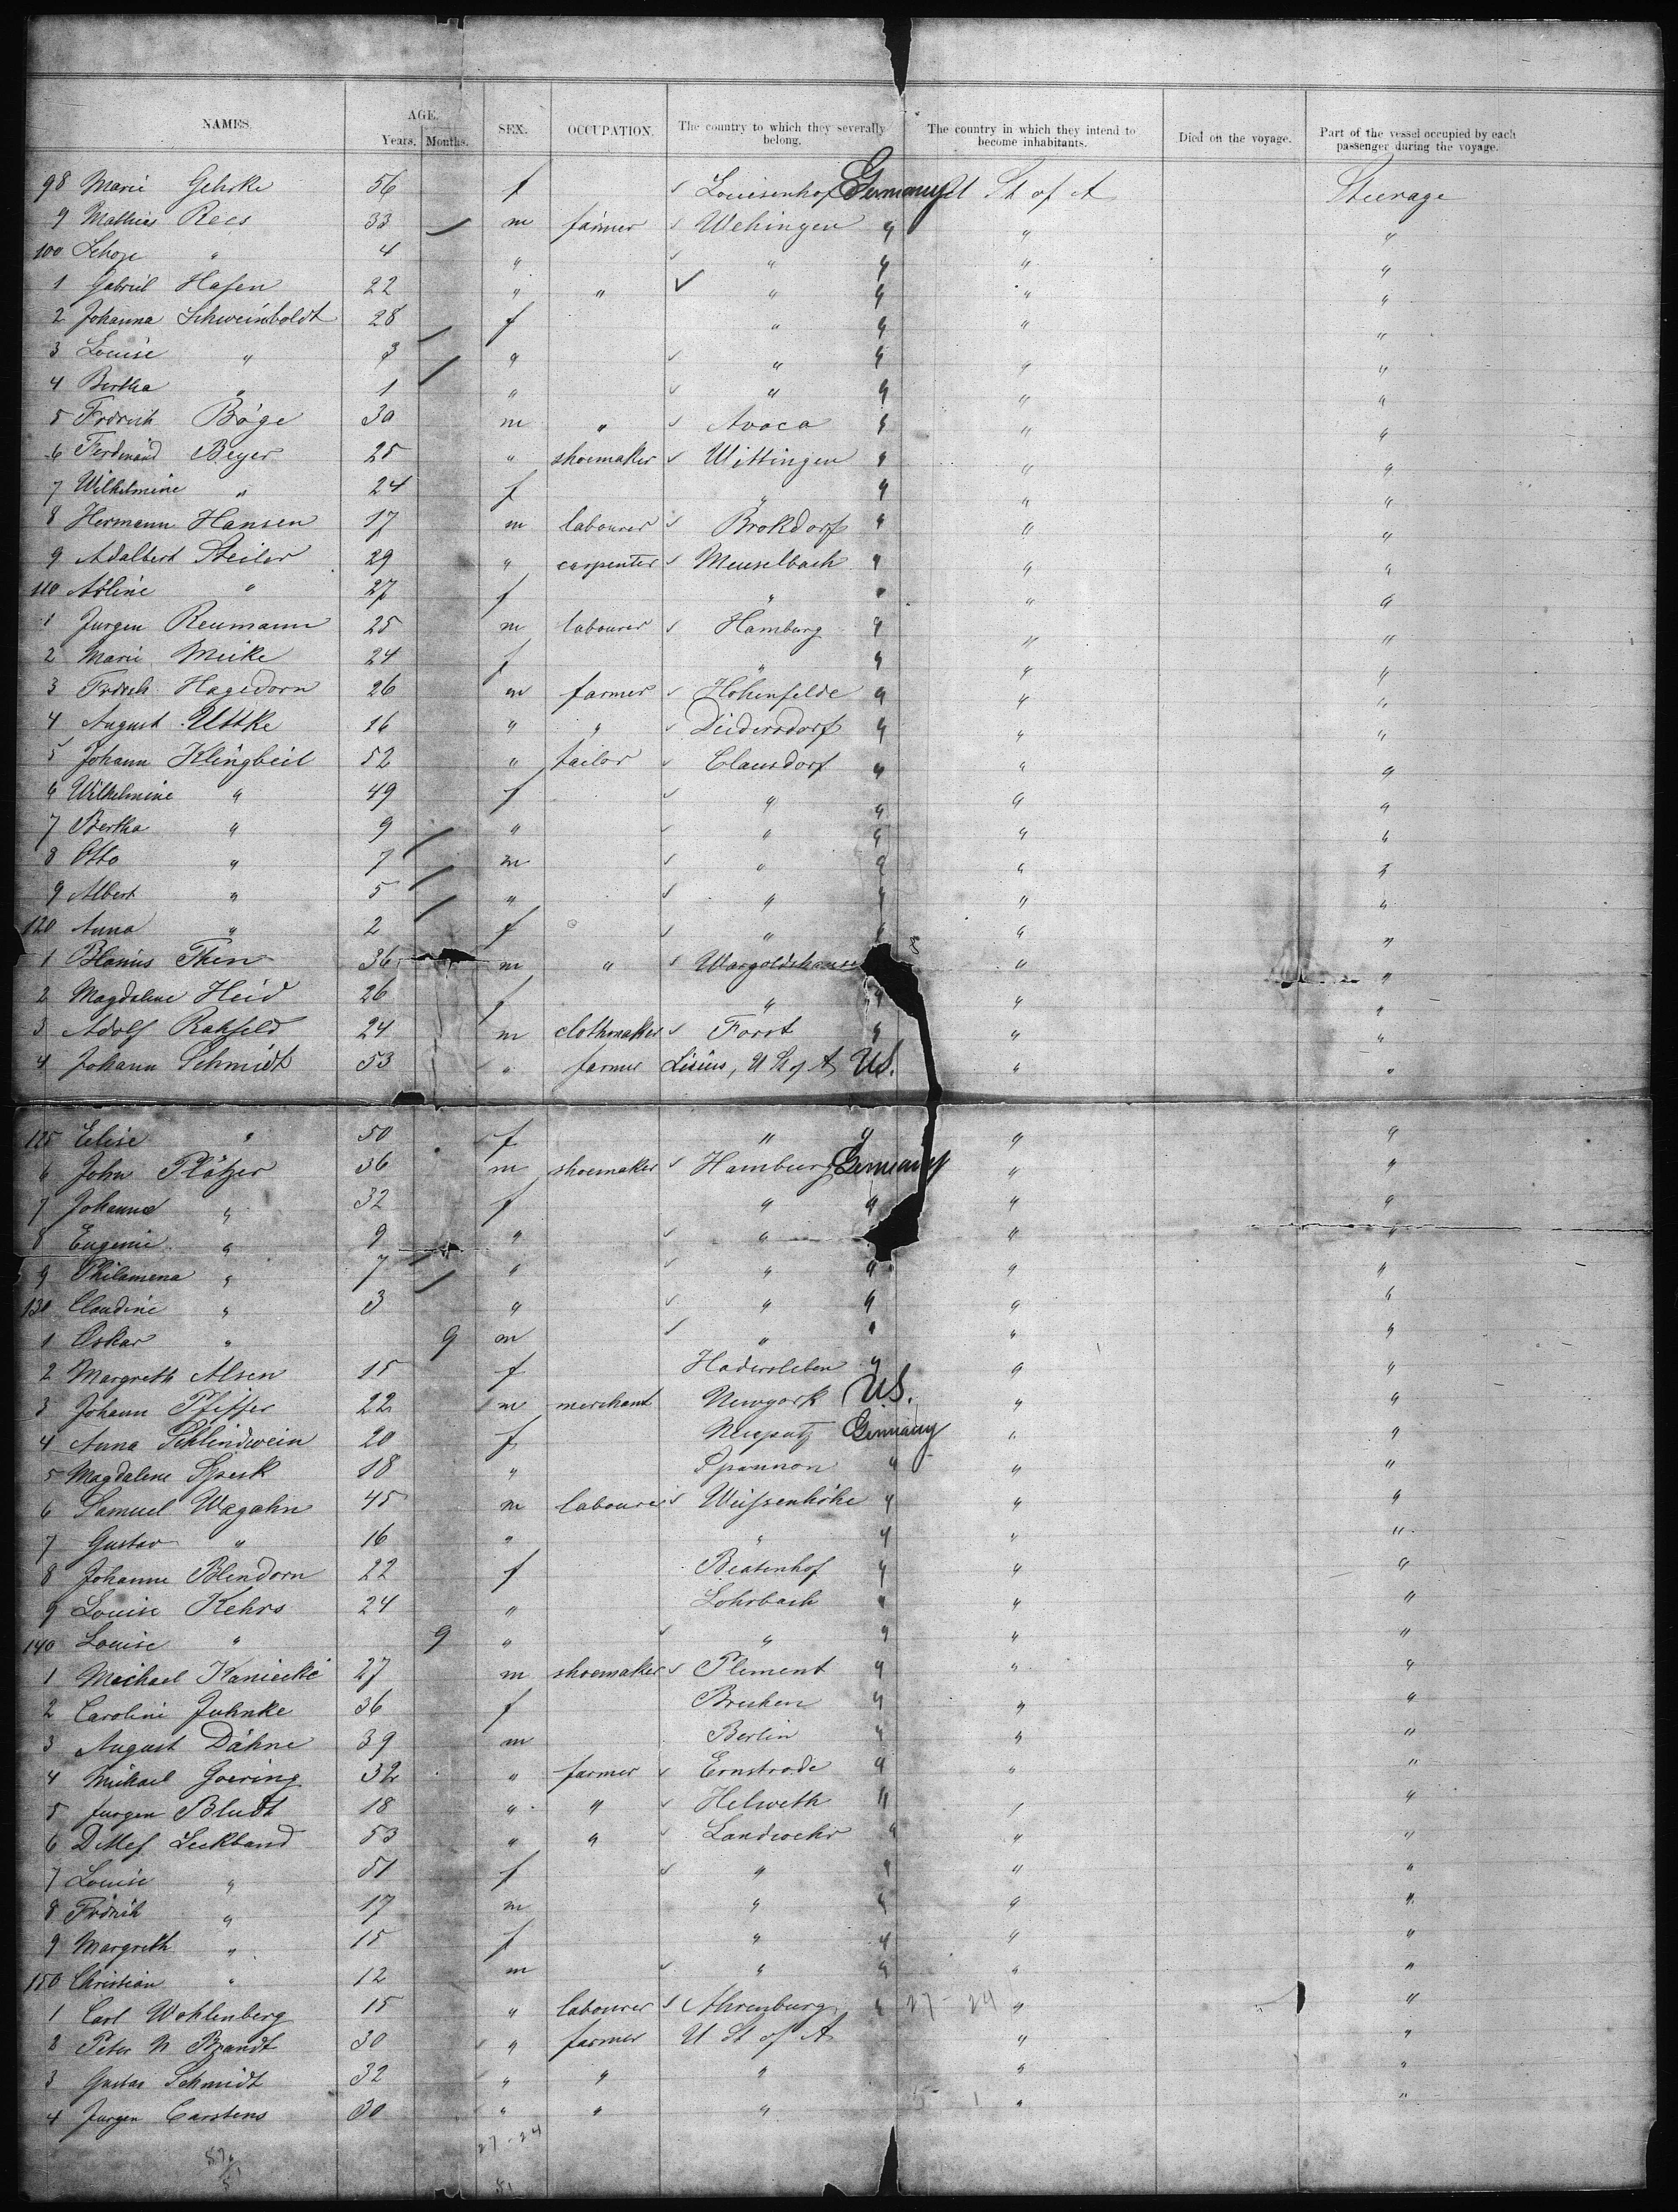 NAMES. AGE. Years. Months. SEX. OCCUPATION. The country to which they severally belong. The country in which they intend to become inhabitants. Died on the voyage. Part of the vessel occupied by each passenger during the voyage.
98 Marie Gehrke 56 f Louisenhof Germany U St of A Steerage
9 Mathias Rees 33 m farmer Wehingen " " "
100 " 4 " " " " "
1 Gabriel Hafen 22 " " " " " "
2 Johanna Schweinboldt 28 f " " " "
3 Louise " 3 " " " " "
4 Bertha " 1 " " " " "
5 Fredrich Böge 30 m " Avoca " " "
6 Ferdinand Beyer 25 " shoemaker Wittingen " " "
7 Wilhelmine " 24 f " " " "
8 Hermann Hansen 17 m labourer Brokdorf " " "
9 Adalbert Steiler 29 " carpenter Meuselbach " " "
110 " 27 f " " " "
1 Jurgen Reumann 25 m labourer Hamburg " " "
2 Marie Meike 24 f " " " "
3 Fredrich Hagedorn 26 m farmer Hohenfelde " " "
4 August Uttke 16 " " Diedersdorf " " "
5 Johann Klingbeil 52 " tailor Clausdorf " " "
6 Wilhelmine " 49 f " " " "
7 Bertha " 9 " " " " "
8 Otto " 7 m " " " "
9 Albert " 5 " " " " "
120 Anna " 2 f " " " "
1 Then 36 m " " "
2 Magdalene Heid 26 f " " " "
3 Adolf Rahfeld 24 m clothmaker Forst " " "
4 Johann Schmidt 53 " farmer U St of A U.S. " "
125 Elise " 50 f " " " "
6 John Plötzer 36 m shoemaker Hamburg Germany " "
7 Johanna " 32 f " " " "
8 Eugenie " 9 " " " " "
9 Philamena " 7 " " " " "
130 Claudine " 3 " " " " "
1 Oskar " 9 m " " " "
2 Margreth Alsen 15 f Hadersleben " " "
3 Johann Pfiffer 22 m merchant Newyork U.S. " "
4 Anna Schlindwein 20 f Neupotz Germany " "
5 Magdalene Speck 18 " " " "
6 Samuel Wagahn 45 m labourer Weissenhöhe " " "
7 Gustav " 16 " " " " "
8 Johanne Blendorn 22 f Beatenhof " " "
9 Louise Kehrs 24 " Lohrbach " " "
140 Louise " 9 " " " " "
1 Michael Kaniecki 27 m shoemaker Plement " " "
2 Caroline Juhnke 36 f " " "
3 August Dähne 39 m Berlin " " "
4 Michael Goering 32 " farmer Ernstrode " " "
5 Jurgen Bludt 18 " " Helweth " " "
6 Ditlef Leckband 53 " " Landwehr " " "
7 Louise " 51 f " " " "
8 Fridrich " 17 m " " " "
9 Margreth " 15 f " " " "
150 Christian " 12 m " " " "
1 Carl Wohlenberg 15 " labourer Ahrenburg " 27 - 24 " "
2 Peter N Brandt 30 " farmer U St of A " "
3 Gustav Schmidt 32 " " " " "
4 Jurgen Carstens 30 " " " " "
27 - 24